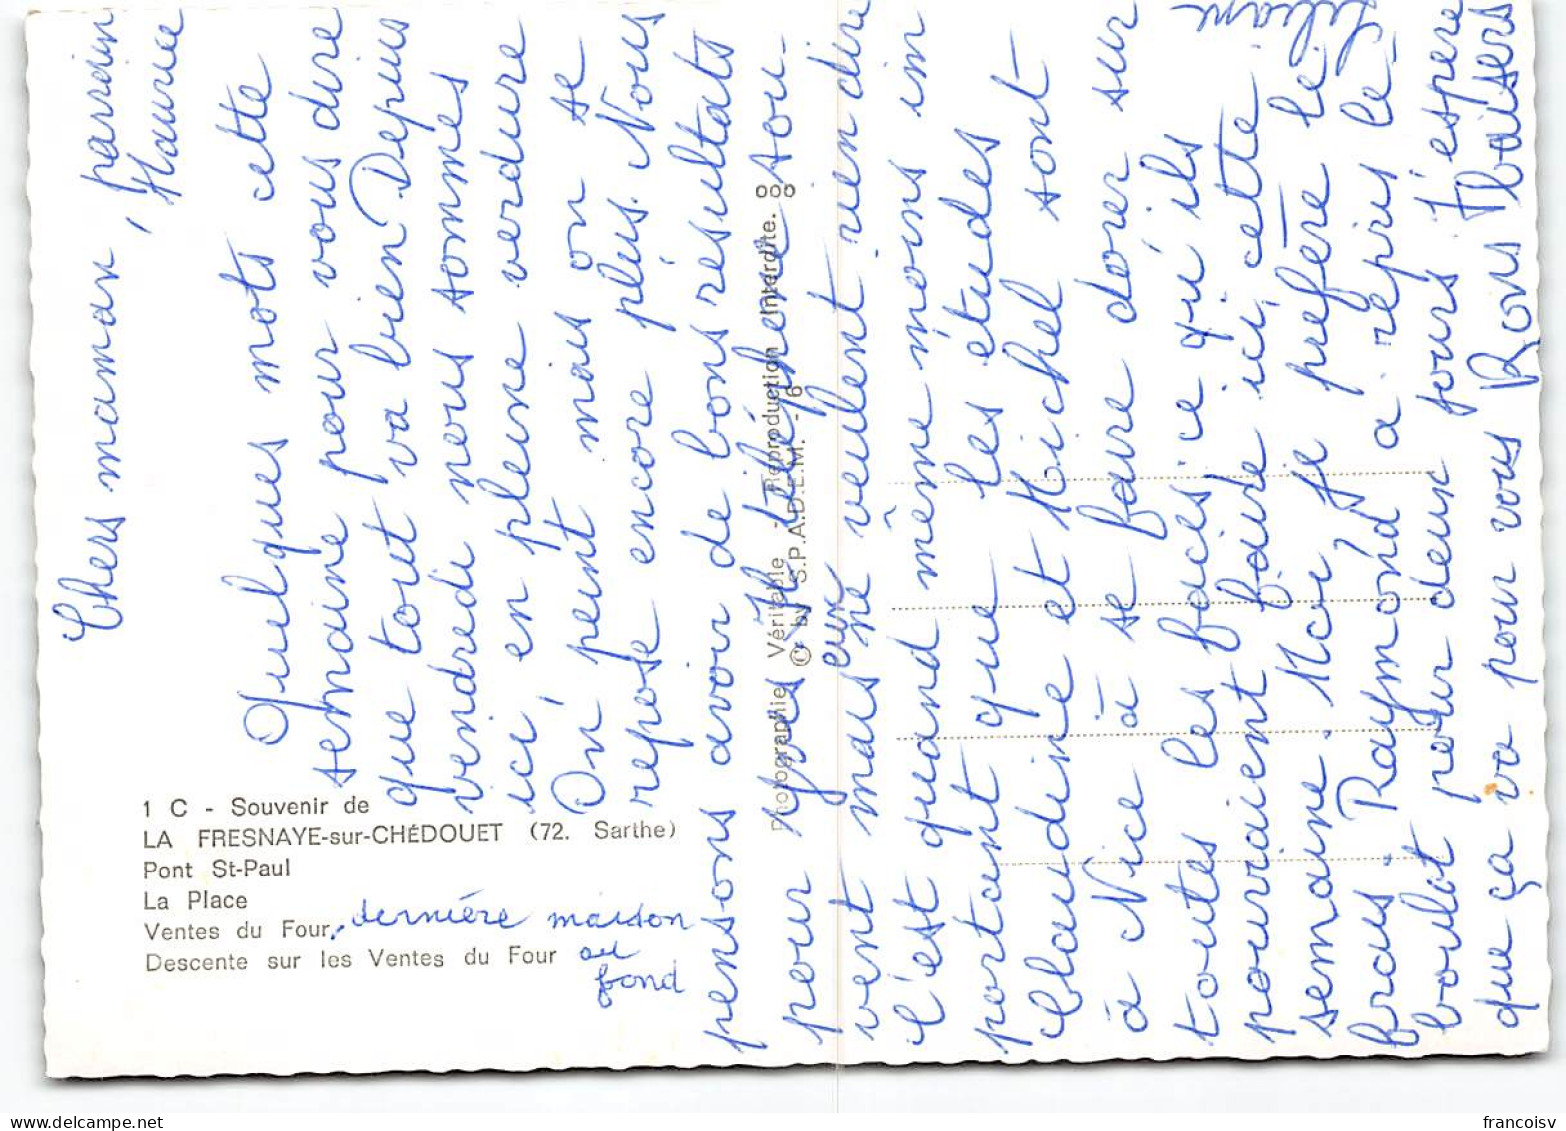 Chers maman, parrain,
Maurice
Quelques mots cette
semaine pour vous dire
que tout va bien Depuis
vendredi nous sommes
ici, en pleine verdure
On peut mais on se
repose encore plus. Nous
pensons avoir de bons resultats
pour Yves Il téléphone sou-
vent mais eux ne veulent rien dire
C'est quand même moins im
portant que les etudes
Claudine et Michel sont
à Nice à se faire dorer sur
toutes les faces, ce qu'ils
pourraient faire ici, cette
semaine. Moi, je prefère le
frais. Raymond a repris le
boulot pour deux jours J'espere
que ça va pour vous Bons baisers
Liliane
1 C - Souvenir de
LA FRESNAYE-sur-CHÉDOUET (72. Sarthe)
Pont St-Paul
La Place
Ventes du Four, dernière maison
au
fond
Descente sur les Ventes du Four
Photographie Véritable - Reproduction Interdite.
© by S.P.A.D.E.M. - 6
francoisv